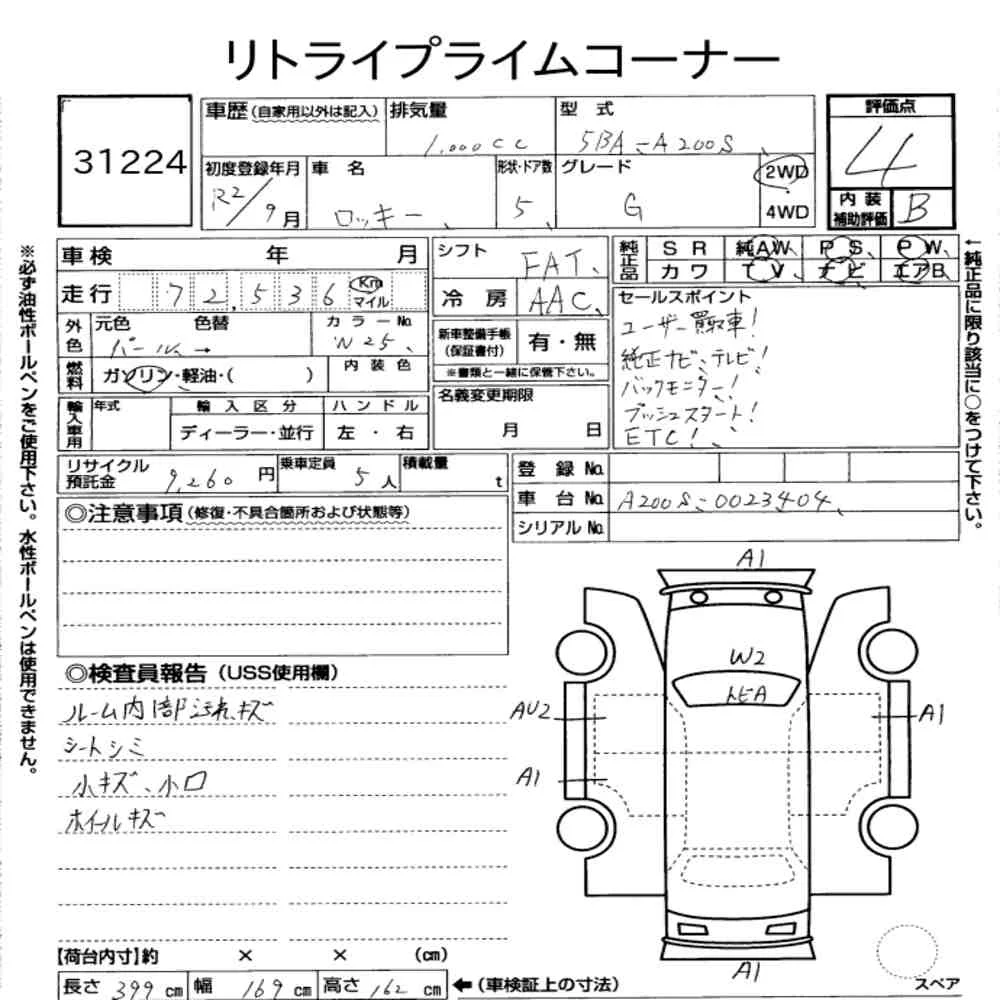 リトライプライムコーナー
31224
車歴(自家用以外は記入)
排気量 1,000cc
型式 5BA-A200S
評価点 4
初度登録年月 R2/9月
車名 ロッキー
形状・ドア数 5
グレード G
2WD
4WD
内装補助評価 B
車検 年 月
走行 72,536 Km マイル
外色 元色 色替 カラーNo.
パール → N25
燃料 ガソリン・軽油・( )
内装色
輸入車用 年式 輸入区分 ハンドル
ディーラー・並行 左・右
シフト FAT
冷房 AAC
新車整備手帳(保証書付) 有・無
※書類と一緒に保管下さい。
名義変更期限
月 日
純正品 SR 純AW PS PW
カワ TV ナビ エアB
セールスポイント
ユーザー買取車!
純正ナビ、テレビ!
バックモニター!
プッシュスタート!
ETC!
リサイクル預託金 9,260円
乗車定員 5人
積載量 t
登録No.
車台No. A200S-0023404
シリアルNo.
◎注意事項(修復・不具合箇所および状態等)
◎検査員報告(USS使用欄)
ルーム内部汚れ、キズ
シートシミ
小キズ、小凹
ホイールキズ
A1
W2
トビA
AU2
A1
A1
A1
スペア
【荷台内寸】約 × × (cm)
長さ 399 cm 幅 169 cm 高さ 162 cm ←(車検証上の寸法)
※必ず油性ボールペンをご使用下さい。水性ボールペンは使用できません。
←純正品に限り該当に○をつけて下さい。